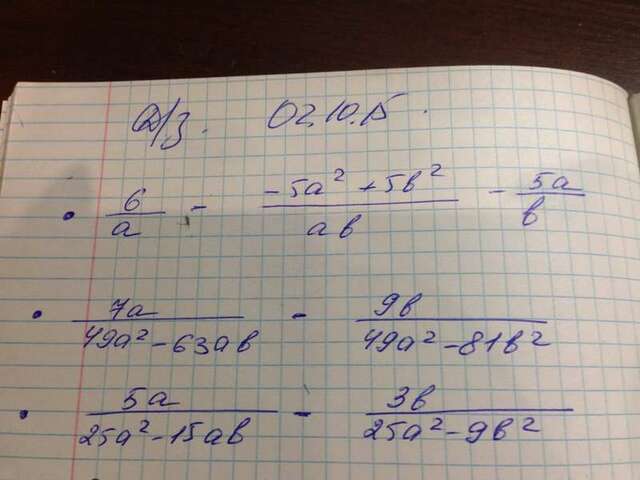 Д/з. 02.10.15.
• 6/a - (-5a² + 5b²)/ab - 5a/b
• 7a/(49a² - 63ab) - 9b/(49a² - 81b²)
• 5a/(25a² - 15ab) - 3b/(25a² - 9b²)